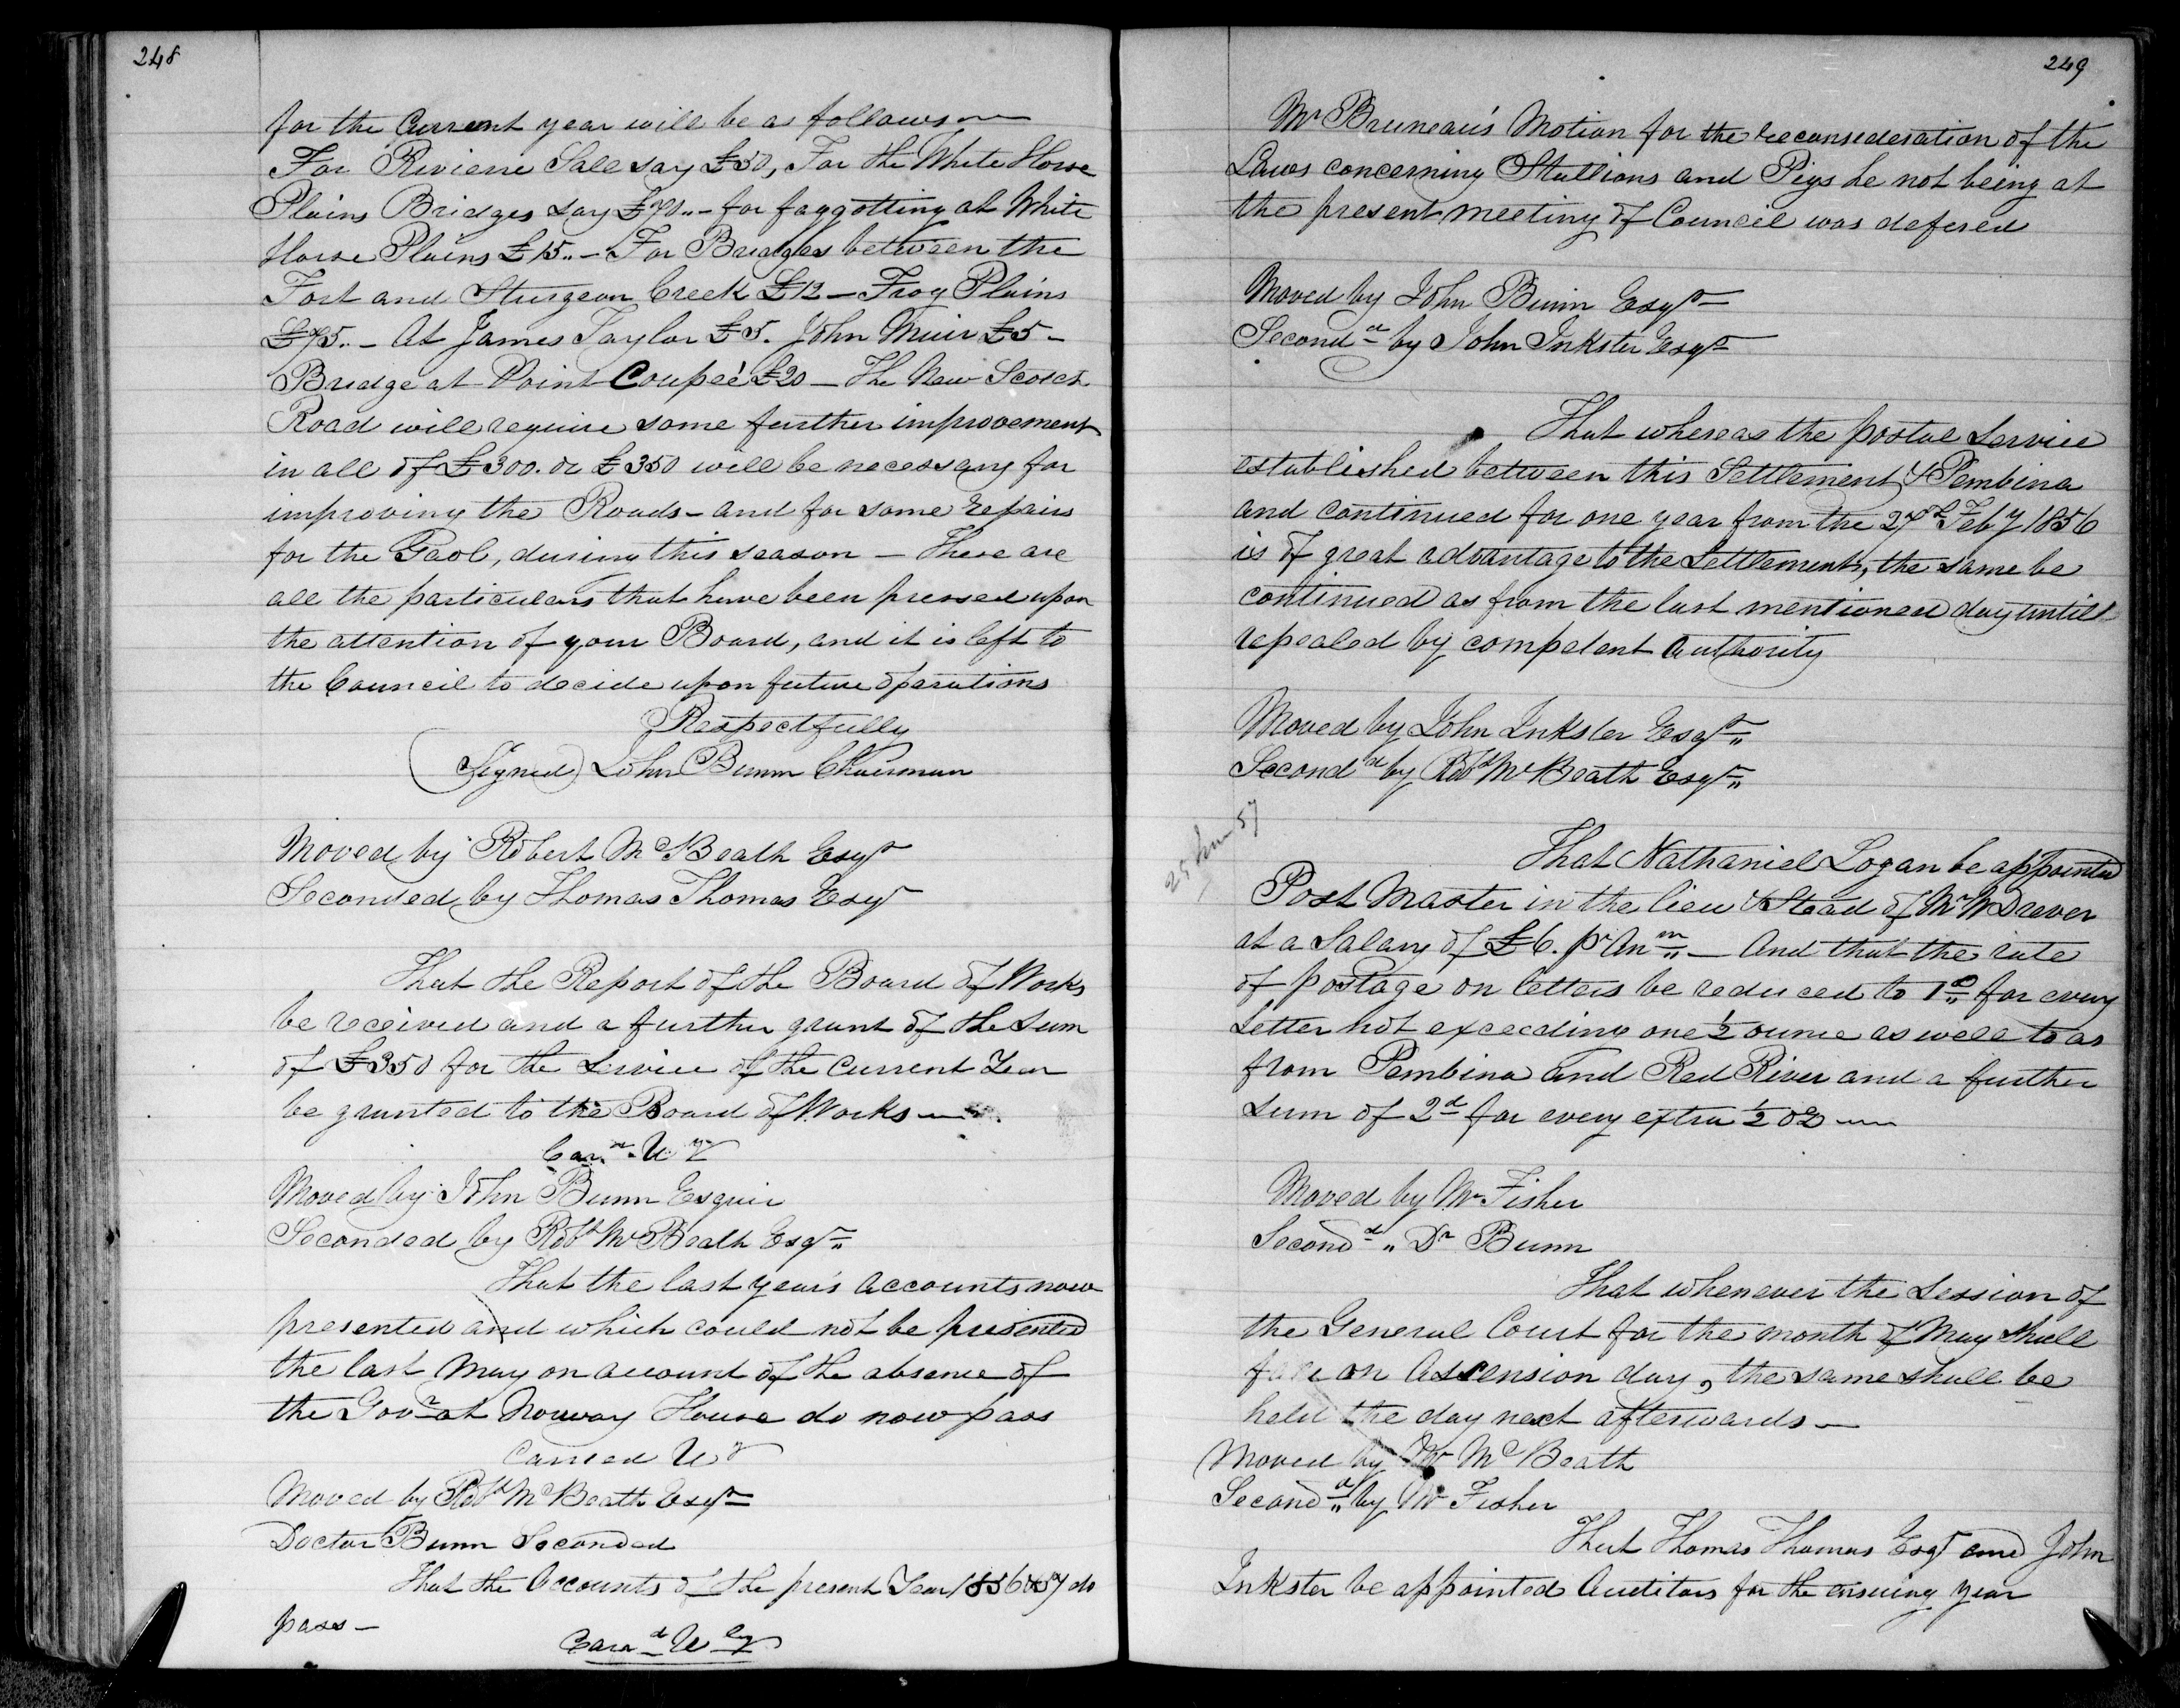 248
for the Current year will be as follows —
For Riviere Sale say £50, For the White Horse
Plains Bridges say £70„ – for faggotting at White
Horse Plains £15„ – For Bridges between the
Fort and Sturgeon Creek £12 – Frog Plains
£75„ – At James Taylor £5. John Muir £5 –
Bridge at Point Coupeé £20 – The New Scotch
Road will require some further improvement
in all of £300. or £350 will be necessary for
improving the Roads – and for some repairs
for the Gaol, during this season – These are
all the particulars that have been pressed upon
the attention of your Board, and it is left to
the Council to decide upon future operations
Respectfully
(Signed) John Bunn Chairman
Moved by Robert McBeath Esqr
Seconded by Thomas Thomas Esqr
That the Report of the Board of Works
be received and a further grant of the Sum
of £350 for the Service of the Current Year
be granted to the Board of Works —
Card Uy
Moved by John Bunn Esquir
Seconded by Robt McBeath Esqr„
That the last year's Accounts now
presented and which could not be presented
the last May on account of the absence of
the Govr at Norway House do now pass
Carried Uy
Moved by Robt McBeath Esqr
Doctor Bunn Seconded
That the Accounts of the present Year 1856 & 57 do
pass –
Card Uly
249
Mr Bruneau's Motion for the reconsederation of the
Laws concerning Stallions and Pigs he not being at
the present meeting of Council was defered
Moved by John Bunn Esqr
Secondd by John Inkster Esqr
That whereas the postal Service
established between this Settlement & Pembina
and continued for one year from the 27th Feby 1856
is of great advantage to the Settlement, the same be
continued as from the last mentioned day untill
repealed by competent Authority
Moved by John Inkster Esqr„
Secondd by Robt McBeath Esqr„
25 June 57
That Nathaniel Logan be appointed
Post Master in the lieu & Stead of Mr W Drever
at a Salary of £6. pr Anm„ – And that the rate
of postage on letters be reduced to 1d„ for every
Letter not exceeding one ½ ounce as well to as
from Pembina and Red River and a further
sum of 2d for every extra ½ oz —
Moved by Mr Fisher
Secondd „ Dr Bunn
That whenever the Session of
the General Court for the month of May shall
fall on Ascension day, the same shall be
held the day next afterwards –
Moved by Mr McBeath
Secondd„ by Mr Fisher
That Thomas Thomas Esqr and John
Inkster be appointed Auditors for the ensuing year